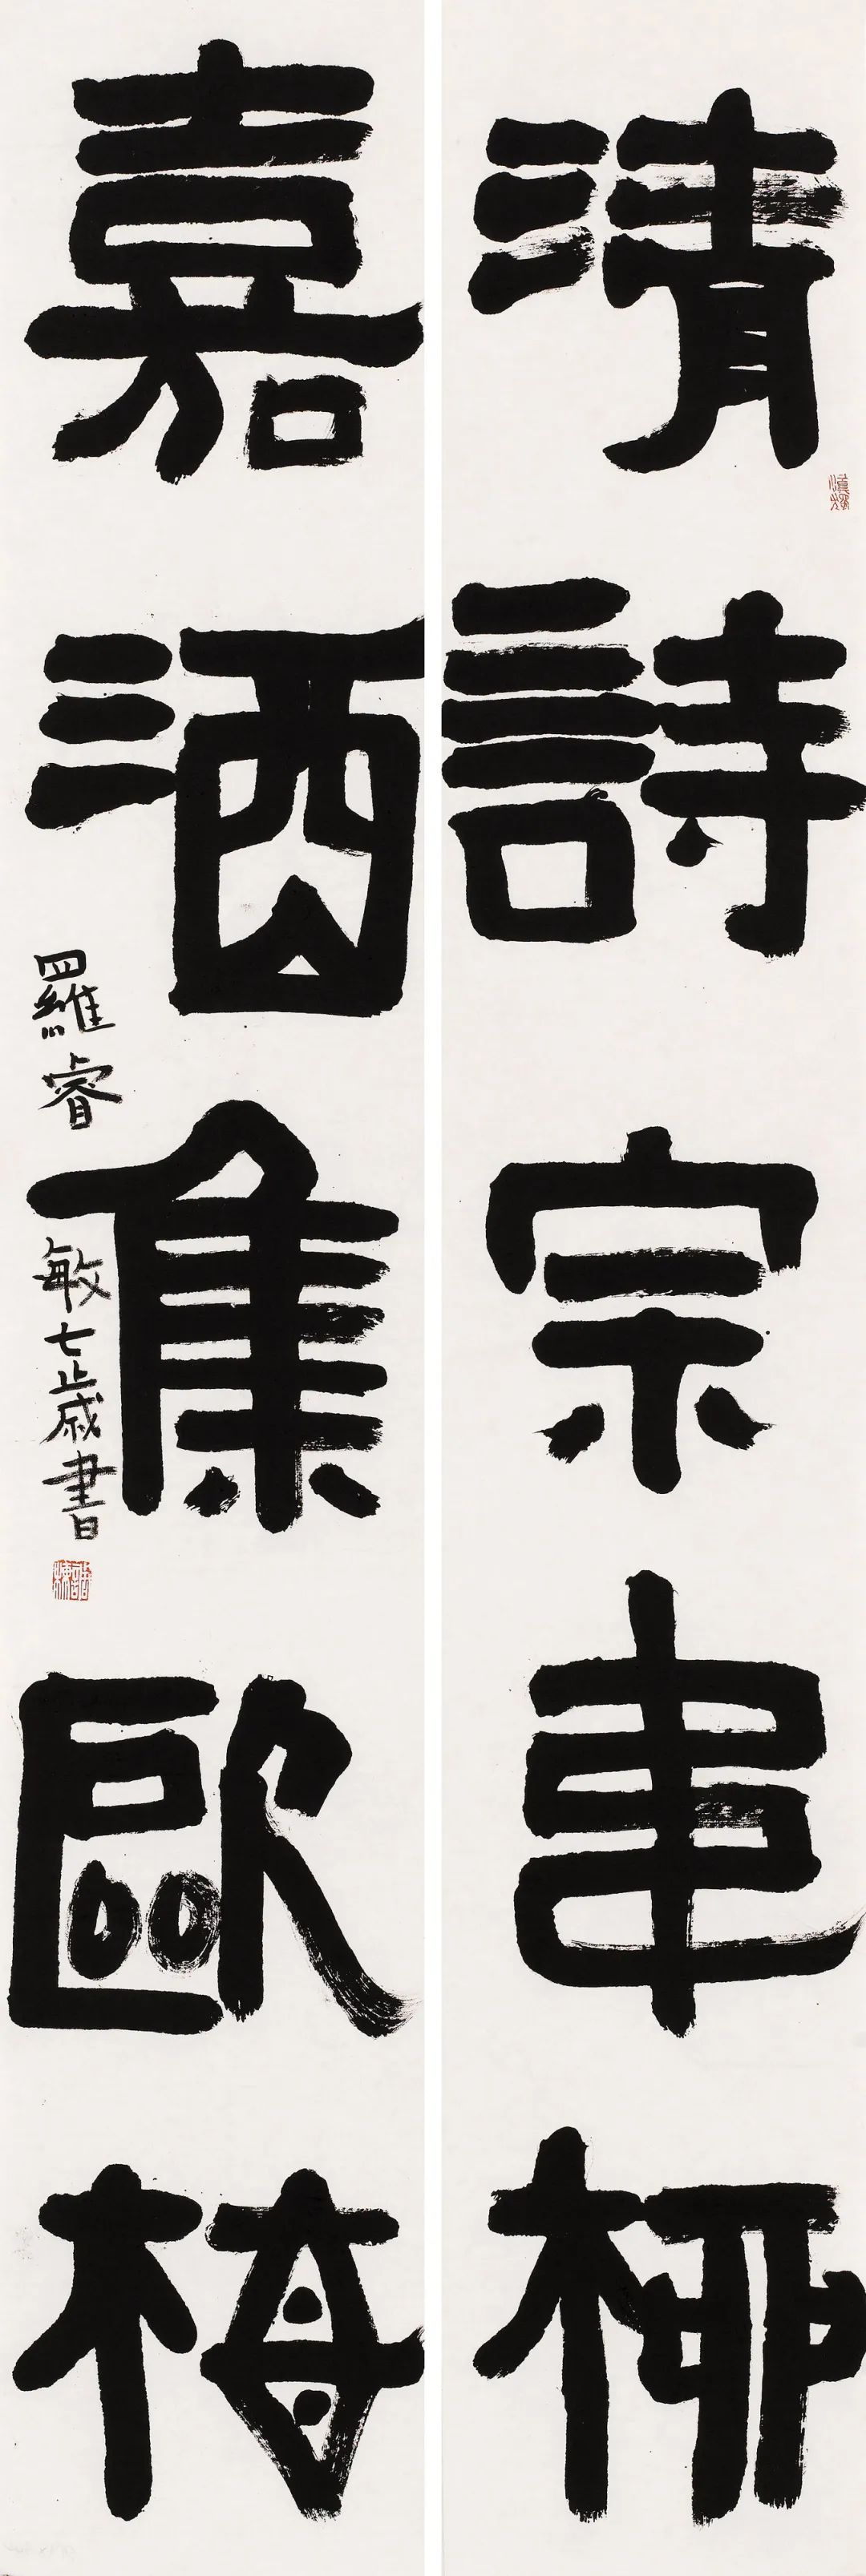 清詩宗韋柳
嘉酒集歐梅
羅睿敏七歲書